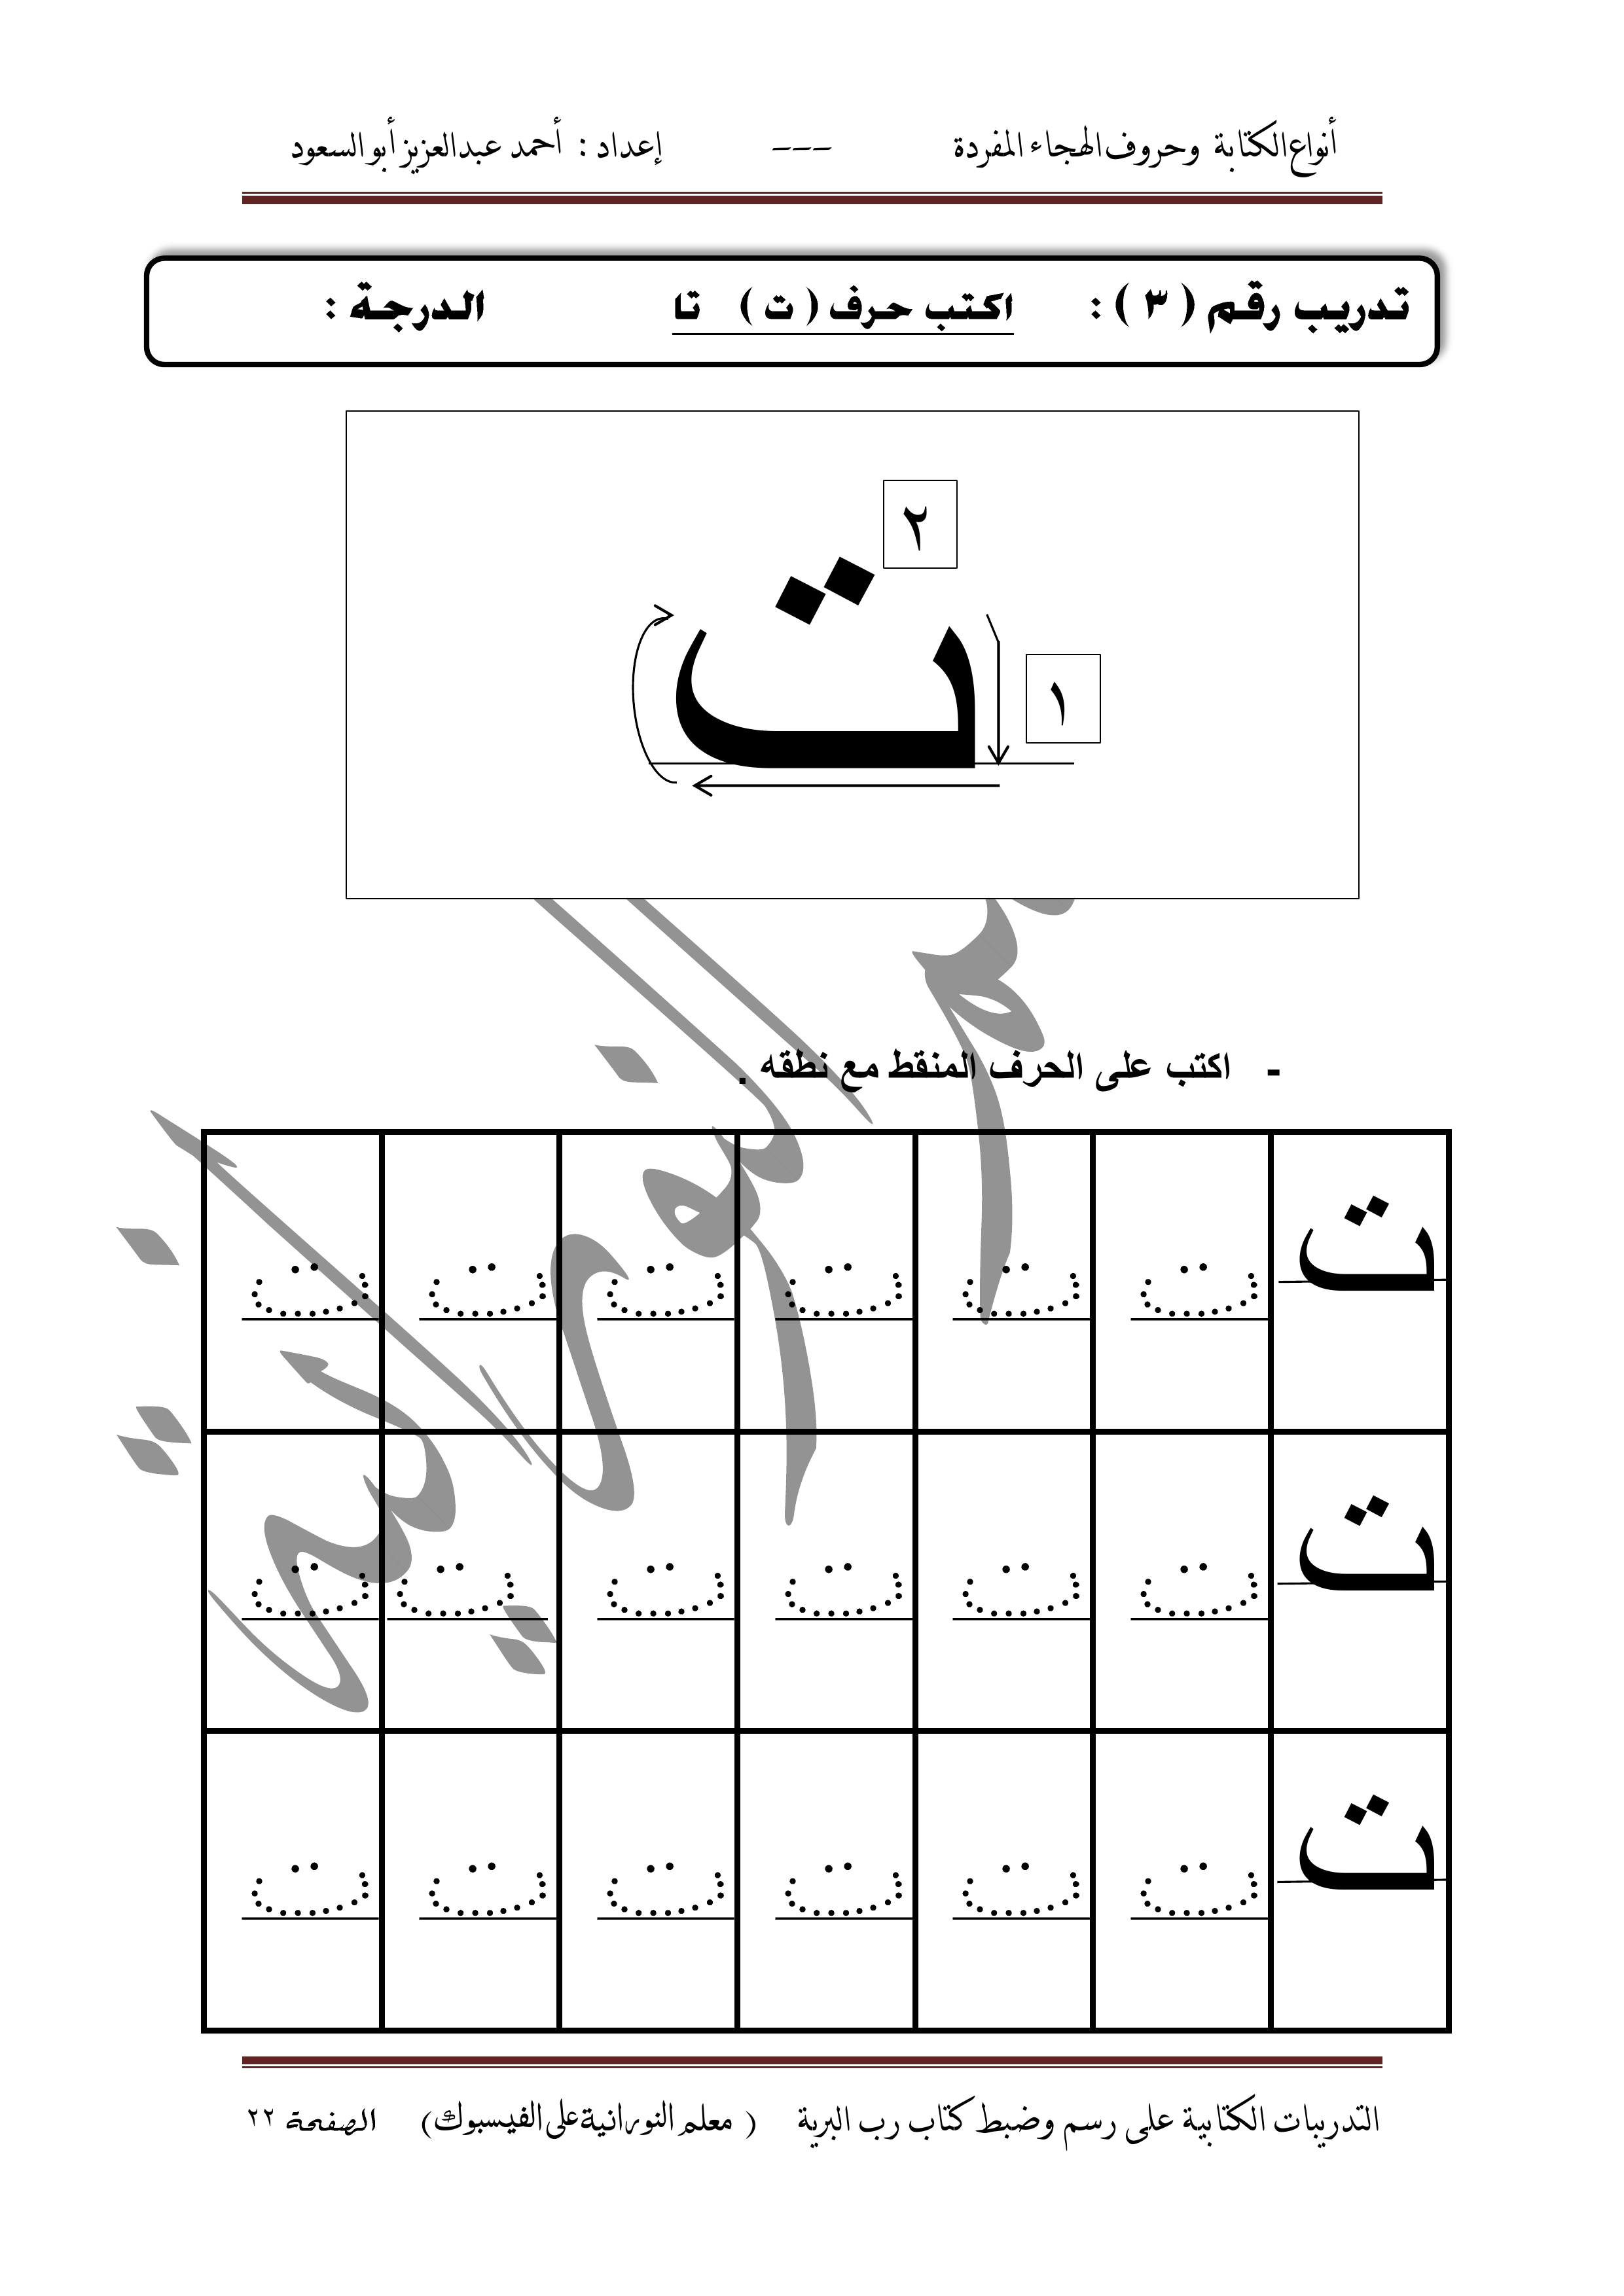 أنواع الكتابة وحروف الهجاء المفردة --- إعداد : أحمد عبدالعزيز أبو السعود
تدريب رقم ( ٣ ) : اكتب حرف ( ت ) تا الدرجة :
٢
ت
١
- اكتب على الحرف المنقط مع نطقه .
ت ت ت ت ت ت ت
ت ت ت ت ت ت ت
ت ت ت ت ت ت ت
التدريبات الكتابية على رسم وضبط كتاب رب البرية ( معلم النورانية على الفيسبوك) الصفحة ٢٢